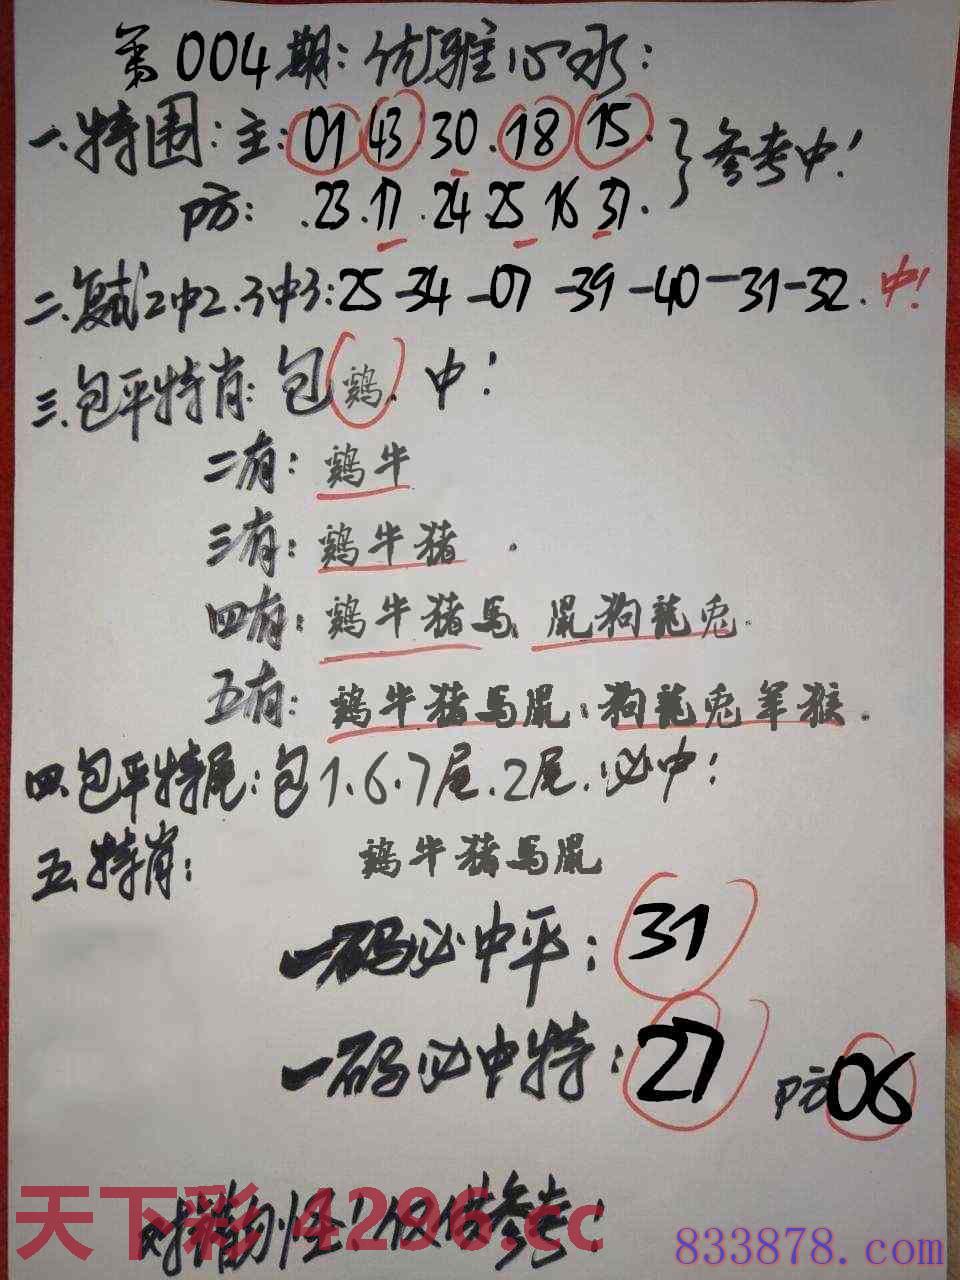 第004期:优雅心水:
一.特围:主:01.43.30.18.15. }参考中!
防: .23.17.24.25 16 37.
二.复试2中2.3中3:25-34-07-39-40-31-32.中!
三.包平特肖:包鷄.中!
二有:鷄牛
三有:鷄牛猪.
四有:鷄牛猪馬 鼠狗龍兔.
五有:鷄牛猪馬鼠.狗龍兔羊猴.
四.包平特尾:包1.6.7尾.2尾.必中!
五.特肖: 鷄牛猪馬鼠
一码必中平:31
一码必中特:27 防06
天下彩 4296.cc
对错勿怪!仅供参考!
833878.com